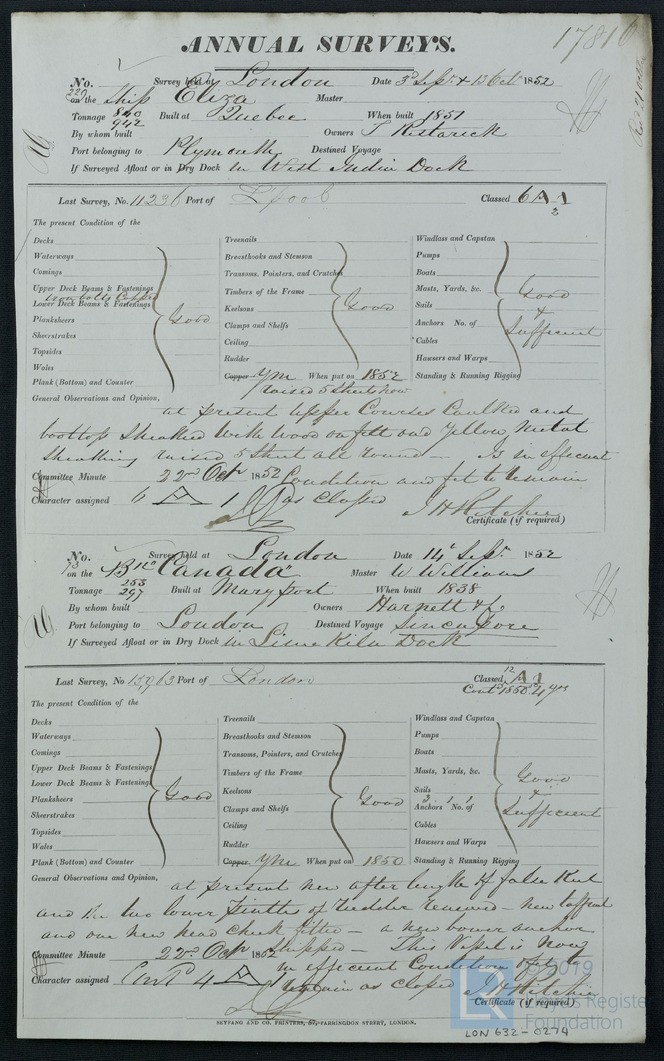 ANNUAL SURVEYS.
17816
No. 220 Survey held at London Date 3d Sept & 13 Octr 1852
on the Ship Eliza Master
Tonnage 840 942 Built at Quebec When built 1851
By whom built Owners
Port belonging to Plymouth Destined Voyage
If Surveyed Afloat or in Dry Dock in West India Dock
Last Survey, No. 11236 Port of L'pool Classed 6 A 1
The present Condition of the
Decks
Waterways
Comings
Upper Deck Beams & Fastenings
Lower Deck Beams & Fastenings
Planksheers
Sheerstrakes
Topsides
Wales
Plank (Bottom) and Counter
Good
Treenails
Breasthooks and Stemson
Transoms, Pointers, and Crutches
Timbers of the Frame
Keelsons
Clamps and Shelfs
Ceiling
Rudder
Copper YM When put on 1852
raised 5 Sheets now
Good
Windlass and Capstan
Pumps
Boats
Masts, Yards, &c.
Sails
Anchors No. of
Cables
Hawsers and Warps
Standing & Running Rigging
Good
&
Sufficient
General Observations and Opinion,
at present upper Courses Caulked and
boottop Sheathed with wood on felt and Yellow Metal
Sheathing raised 5 Sheet all round — Is in efficient
Committee Minute 22 Octr 1852 Condition and fit to remain
Character assigned 6 A 1 as Classed
Certificate (if required)
No. 73 Survey held at London Date 14 Sepr 1852
on the "Canada" Master W Williams
Tonnage 253 297 Built at Maryport When built 1838
By whom built Owners Harnett & Co
Port belonging to London Destined Voyage Sincapore
If Surveyed Afloat or in Dry Dock in Lime Kiln Dock
Last Survey, No Port of London Classed 12 A 1
Cont 1850 4 yrs
The present Condition of the
Decks
Waterways
Comings
Upper Deck Beams & Fastenings
Lower Deck Beams & Fastenings
Planksheers
Sheerstrakes
Topsides
Wales
Plank (Bottom) and Counter
Good
Treenails
Breasthooks and Stemson
Transoms, Pointers, and Crutches
Timbers of the Frame
Keelsons
Clamps and Shelfs
Ceiling
Rudder
Copper YM When put on 1850
Good
Windlass and Capstan
Pumps
Boats
Masts, Yards, &c.
Sails
Anchors No. of
Cables
Hawsers and Warps
Standing & Running Rigging
Good
&
Sufficient
General Observations and Opinion,
at present new after length of false Keel
and the two lower Pintles of Rudder renewed — new
and one new head Cheek fitted — a new bower anchor
Committee Minute 22 Octr 1852 Shipped — This Vessel is now
in efficient Condition & fit to
Character assigned Contd 4 A remain as Classed
Certificate (if required)
SEYFANG AND CO. PRINTERS, 57, FARRINGDON STREET, LONDON.
LR © 2019
Lloyd's Register
Foundation
LON 632-0274